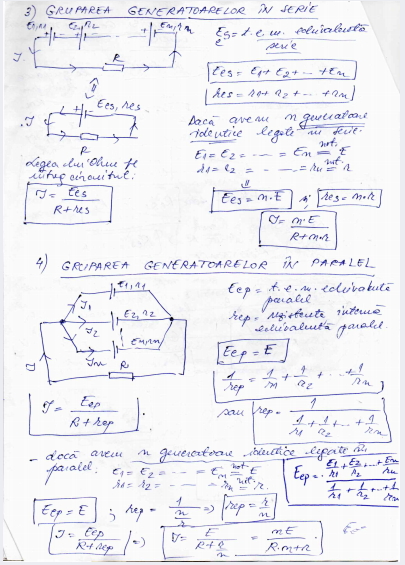 3) GRUPAREA GENERATOARELOR ÎN SERIE
E1,r1 E2,r2 En,rn
I R
Ees = t.e.m. echivalentă
serie
Ees = E1+E2+ ··· +En
res = r1+r2+ ··· +rn
Ees, res
I
R
Dacă avem n generatoare
identice legate în serie.
E1 = E2 = ---- = En not= E
r1 = r2 = ---- = rn not= r
Legea lui Ohm pt
întreg circuitul:
I = Ees / (R+res)
Ees = n·E și res = n·r
I = n·E / (R+n·r)
4) GRUPAREA GENERATOARELOR ÎN PARALEL
E1,r1
I1
E2,r2
I2
En,rn
In
I R
Eep = t.e.m. echivalentă
paralel
rep = rezistența internă
echivalentă paralel.
Eep = E
1/rep = 1/r1 + 1/r2 + ··· + 1/rn
I = Eep / (R+rep)
sau rep = 1 / (1/r1 + 1/r2 + ··· + 1/rn)
- dacă avem n generatoare identice legate în
paralel: E1 = E2 = ---- = En not= E
r1 = r2 = ---- = rn not= r.
Eep = (E1/r1 + E2/r2 + ··· + En/rn) / (1/r1 + 1/r2 + ··· + 1/rn)
Eep = E ; rep = 1/(n/r) => rep = r/n
I = Eep / (R+rep) => I = E / (R + r/n) = nE / (R·n+r)